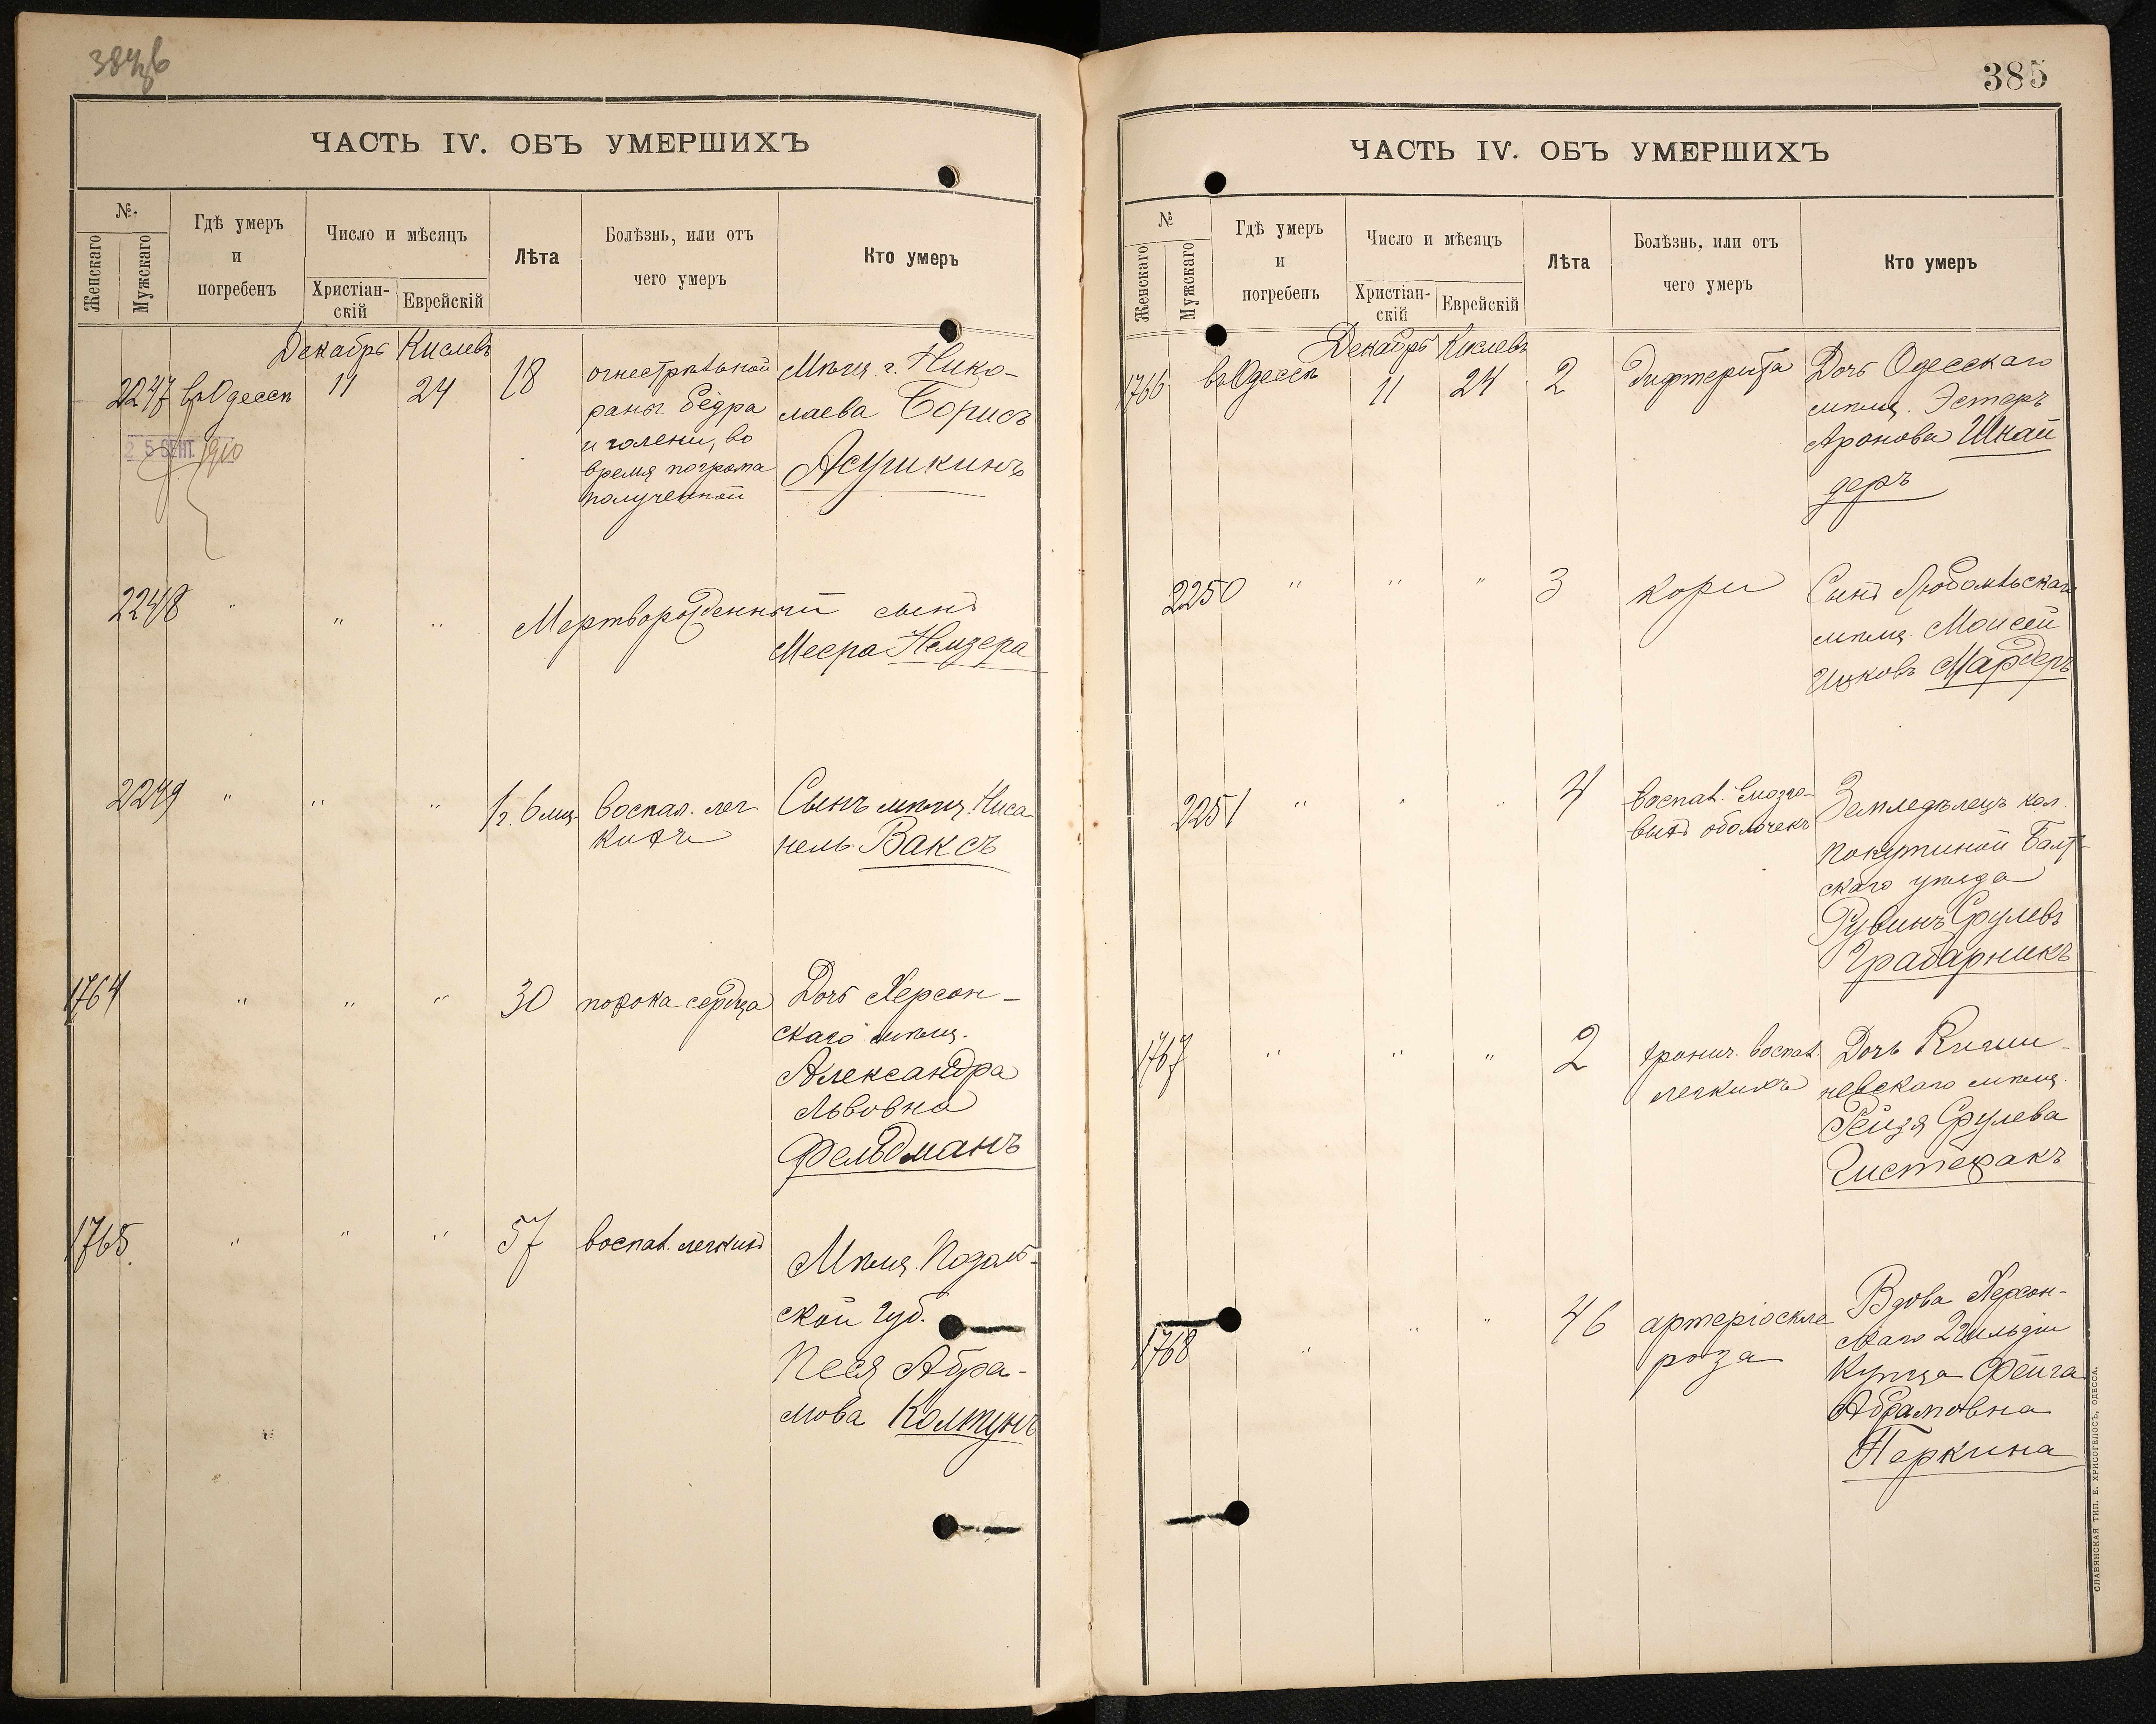 384об
ЧАСТЬ IV. ОБЪ УМЕРШИХЪ
№.
Женскаго
Мужскаго
Гдѣ умеръ
и
погребенъ
Число и мѣсяцъ
Христіан-
скій
Еврейскій
Лѣта
Болѣзнь, или отъ
чего умеръ
Кто умеръ
Декабрь Кислевъ
2247 въ Одессѣ 11 24 18
огнестрѣльной
раны бедра
и голени, во
время погрома
полученной
Мѣщ. г. Нико-
лаева Борисъ
Асушкинъ
25 СЕНТ. 1910
2248 " " " Мертворожденный сынъ
Меера Немзера
2249 " " " 1 г. 6 мц. воспал. лег
кихъ
Сынъ мѣщ. Ниса
нель Ваксъ
1764 " " " 30 порока сердца
Дочь Херсон-
скаго мѣщ.
Александра
Львовна
Фельдманъ
1765. " " " 57 воспал. легкихъ
Мѣщ. Подоль-
ской губ.
Песя Абра-
мова Колтунъ
385
ЧАСТЬ IV. ОБЪ УМЕРШИХЪ
№
Женскаго
Мужскаго
Гдѣ умеръ
и
погребенъ
Число и мѣсяцъ
Христіан-
скій
Еврейскій
Лѣта
Болѣзнь, или отъ
чего умеръ
Кто умеръ
Декабрь Кислевъ
1766 въ Одессѣ 11 24 2 дифтерита
Дочь Одесскаго
мѣщ. Эстеръ
Аронова Шнай
деръ
2250 " " " 3 кори
Сынъ Любомльскаго
мѣщ. Моисей
Ицковъ Мардеръ
2251 " " " 4 воспал. мозго-
выхъ оболочекъ
Земледѣлецъ кол.
Покутиной Балт-
скаго уѣзда
Рувинъ Срулевъ
Грабарникъ
1767 " " " 2 хронич. воспал.
легкихъ
Дочь Киши-
невскаго мѣщ.
Рейзя Срулева
Чистефакъ
1768 " " " 46 артеріоскле
роза
Вдова Херсон-
скаго 2 гильдіи
Купца Фейга
Абрамовна
Перкина
СЛАВЯНСКАЯ ТИП. Е. ХРИСОГЕЛОСЪ, ОДЕССА.